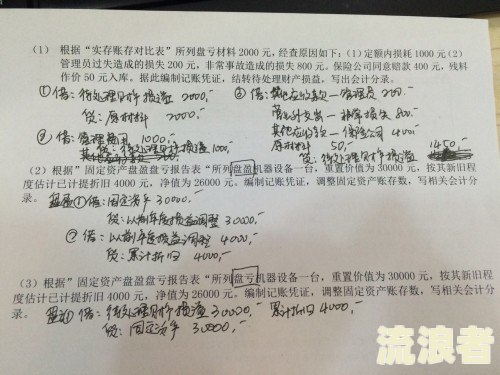 (1) 根据“实存账存对比表”所列盘亏材料 2000 元，经查原因如下：(1) 定额内损耗 1000 元 (2)
管理员过失造成的损失 200 元，非常事故造成的损失 800 元。保险公司同意赔款 400 元，残料
作价 50 元入库。据此编制记账凭证，结转待处理财产损益，写出会计分录。
① 借：待处理财产损溢 2000,-
贷：原材料 2000,-
② 借：管理费用 1000,-
贷：待处理财产损溢 1000
③ 借：其他应收款—管理员 200,-
营业外支出—非常损失 800,-
其他应收款—保险公司 400,-
原材料 50,-
贷：待处理财产损溢 1450,-
(2) 根据”固定资产盘盈盘亏报告表“所列盘盈机器设备一台，重置价值为 30000 元，按其新旧程
度估计已计提折旧 4000 元，净值为 26000 元。编制记账凭证，调整固定资产账存数，写相关会计分
录。
盘盈 ① 借：固定资产 30000,-
贷：以前年度损益调整 30000,-
② 借：以前年度损益调整 4000,-
贷：累计折旧 4000,-
(3) 根据”固定资产盘盈盘亏报告表“所列盘亏机器设备一台，重置价值为 30000 元，按其新旧程
度估计已计提折旧 4000 元，净值为 26000 元，编制记账凭证，调整固定资产账存数，写相关会计分
录。
盘亏 借：待处理财产损溢 30000,- 累计折旧 4000,-
贷：固定资产 30000,-
流浪者